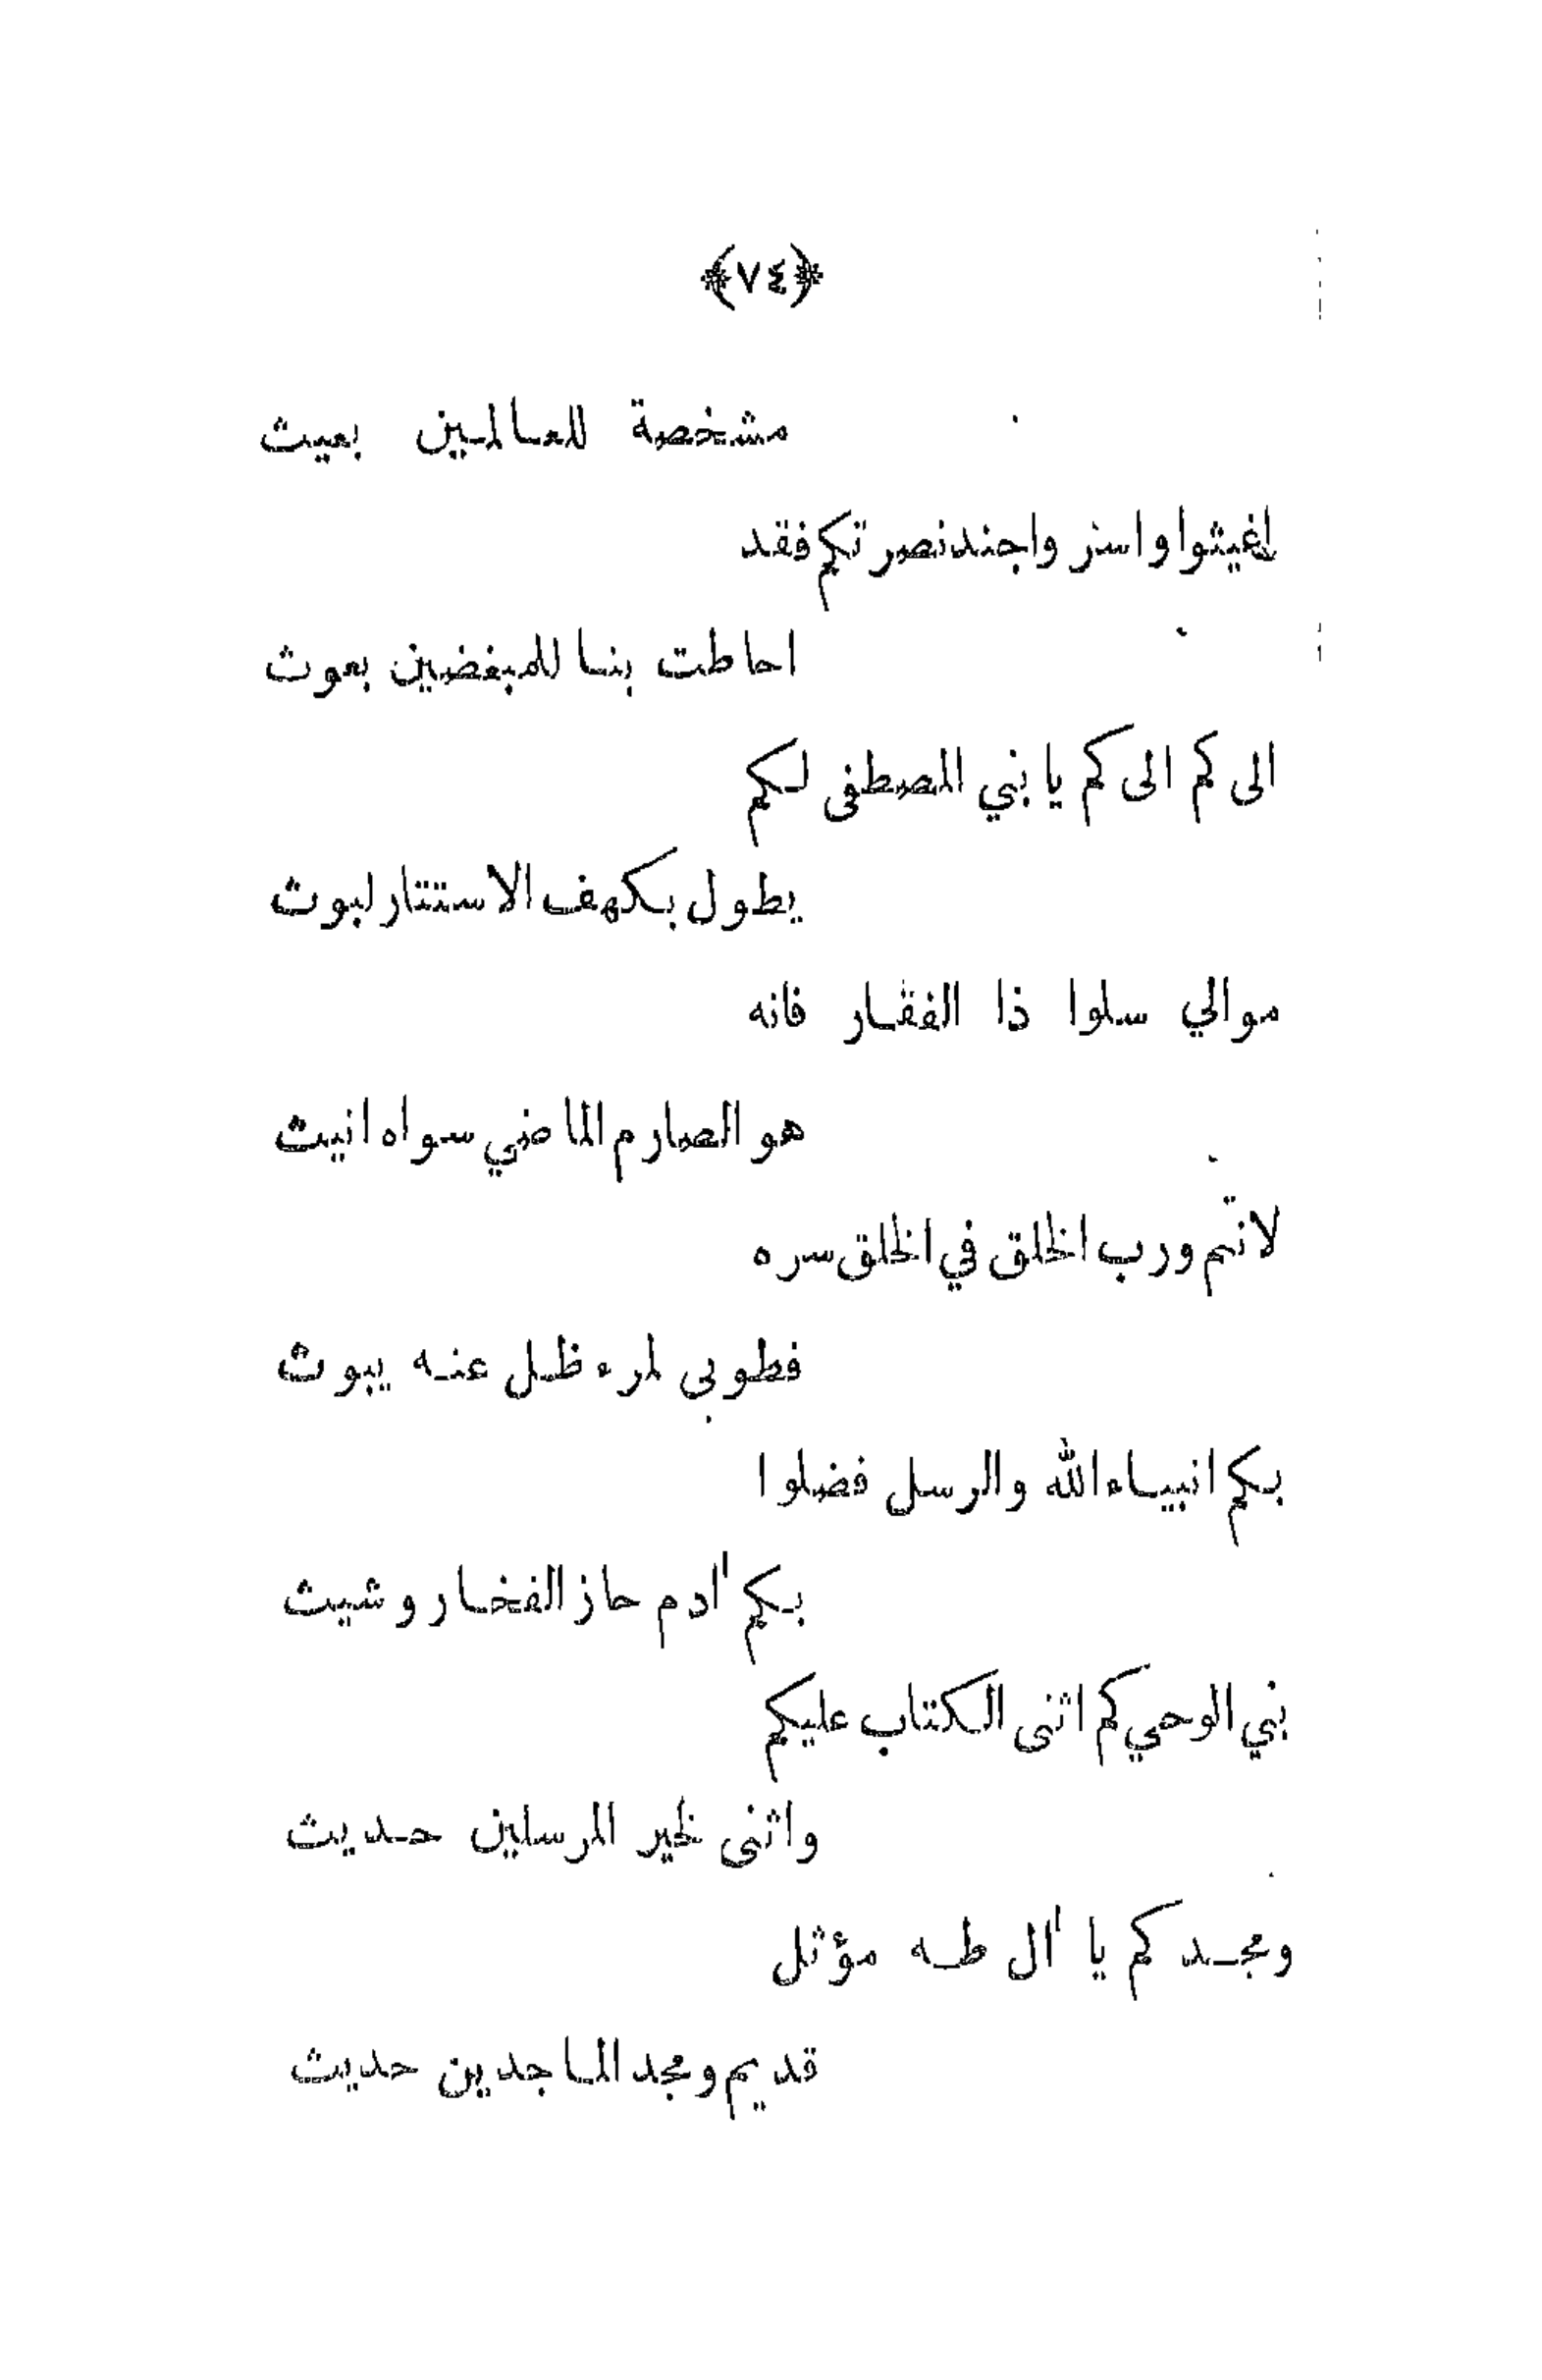 ﴿٧٤﴾
مشخصة للعالمين بعيث
اغيثوا واسر واجند نصرتكم فقد
احاطت بنا للمبغضين بعوث
الى كم الى كم يا بني المصطفى لكم
يطول بكهف الاستتار لبوث
موالي سلوا ذا الفقار فانه
هو الصارم الماضي سواه انيث
لانتم ورب الخلق في الخلق سره
فطوبى لمرء ظل عنه يبوث
بكم انبياء الله والرسل فضلوا
بكم آدم حاز الفخار وشيث
بني الوحي كم اثنى الكتاب عليكم
واثنى لخير المرسلين حديث
ومجدكم يا آل طه مؤثل
قديم ومجد الماجدين حديث